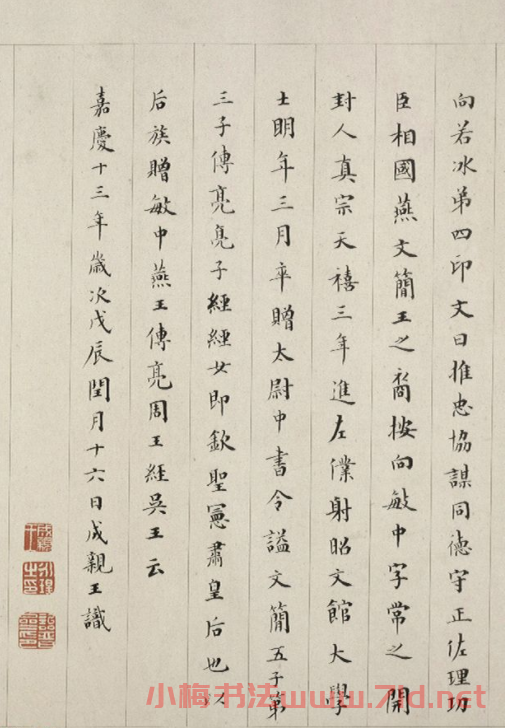 向若冰第四印文曰推忠協謀同德守正佐理功
臣相國燕文簡王之裔按向敏中字常之開
封人真宗天禧三年進左僕射昭文館大學
士明年三月卒贈太尉中書令謚文簡五子第
三子傳亮亮子經經女即欽聖憲肅皇后也以
后族贈敏中燕王傳亮周王經吳王云
嘉慶十三年歲次戊辰閏月十六日成親王識
小梅书法www.71d.net